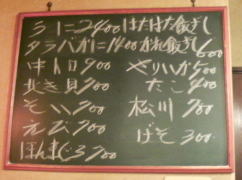 うに2400 はたはた飯ずし
タラバがに1400 かれい飯ずし600
中トロ900 やりいか500
北き貝700 たこ400
そい700 松川700
えび700 げそ300
ほんまぐろ700